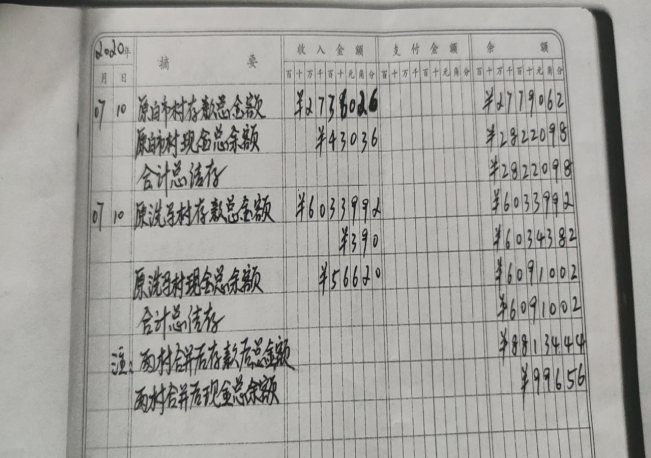 2020年 摘 要 收入金额 支付金额 余 额
月 日 百十万千百十元角分 百十万千百十元角分 百十万千百十元角分
07 10 原白市村存款总金额 ¥2736026 ¥2779062
原白市村现金总余额 ¥43036 ¥2822098
合计总结存 ¥2822098
07 10 原洗马村存款总金额 ¥6033992 ¥6033992
¥390 ¥6034382
原洗马村现金总余额 ¥56620 ¥6091002
合计总结存 ¥6091002
注: 两村合并后存款总金额 ¥8813444
两村合并后现金总余额 ¥99656